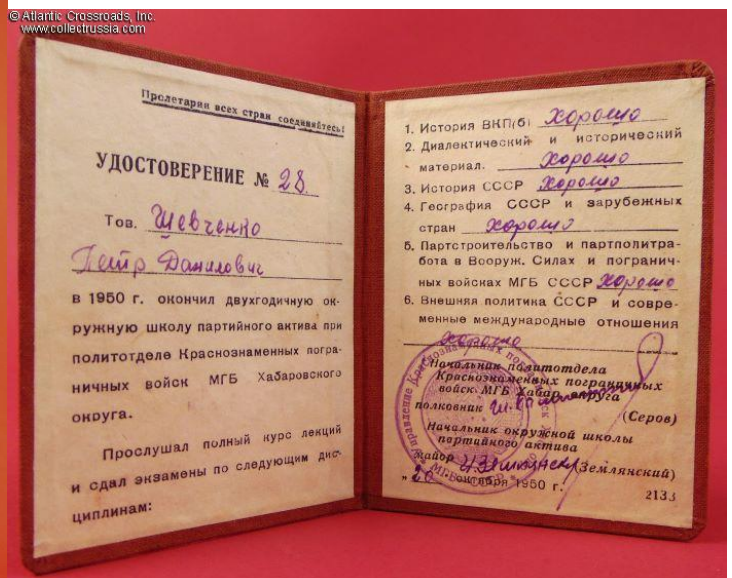 © Atlantic Crossroads, Inc.
www.collectrussia.com
Пролетарии всех стран соединяйтесь!
УДОСТОВЕРЕНИЕ № 28.
Тов. Шевченко
Петр Данилович
в 1950 г. окончил двухгодичную ок-
ружную школу партийного актива при
политотделе Краснознаменных погра-
ничных войск МГБ Хабаровского
округа.
Прослушал полный курс лекций
и сдал экзамены по следующим дис-
циплинам:
1. История ВКП(б) хорошо
2. Диалектический и исторический
материал. хорошо
3. История СССР хорошо
4. География СССР и зарубежных
стран хорошо
5. Партстроительство и партполитра-
бота в Вооруж. Силах и погранич-
ных войсках МГБ СССР хорошо
6. Внешняя политика СССР и совре-
менные международные отношения
хорошо
Начальник политотдела
Краснознаменных пограничных
войск МГБ Хабар. округа
полковник
(Серов)
Начальник окружной школы
партийного актива
майор (Землянский)
"20" октября 1950 г.
2133